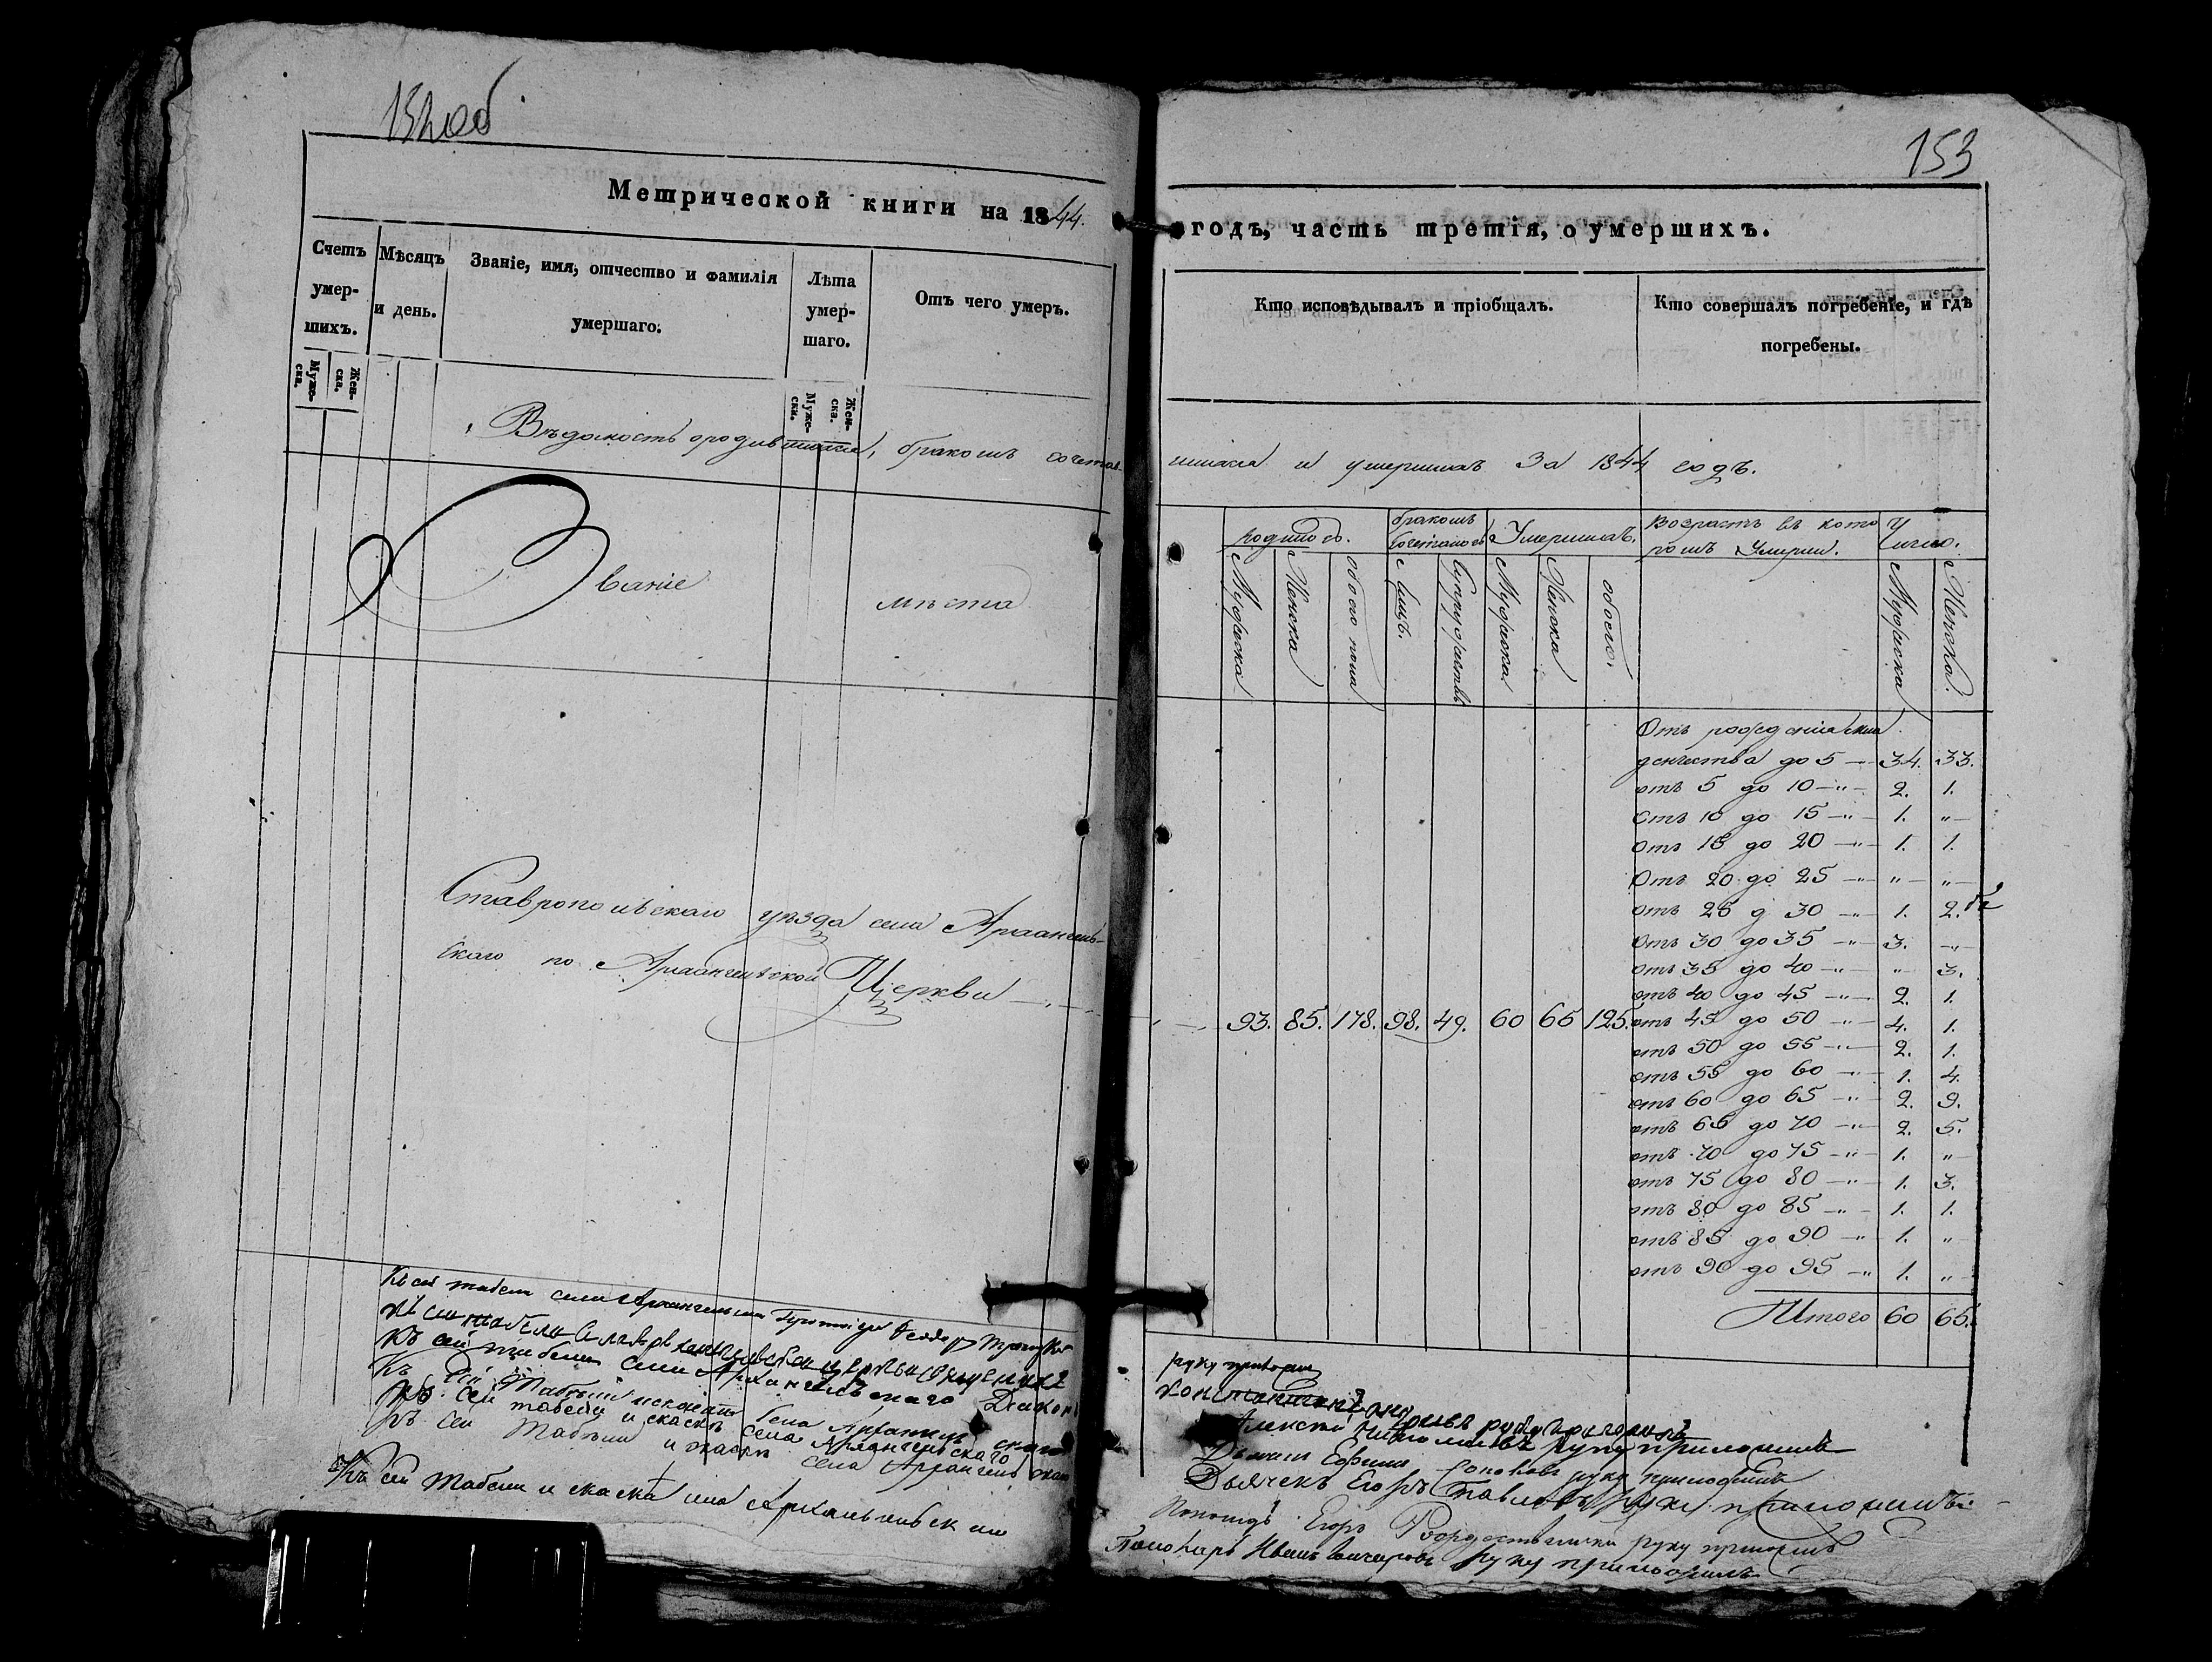 152об
153
Метрической книги на 1844.
годъ, часть третія, о умершихъ.
Счетъ умер-
шихъ.
Муже-
ска.
Жен-
ска.
Мѣсяцъ
и день.
Званіе, имя, отчество и фамилія
умершаго.
Лѣта
умер-
шаго.
Муже-
ски.
Жен-
ска.
Отъ чего умеръ.
Кто исповѣдывалъ и пріобщалъ.
Кто совершалъ погребеніе, и гдѣ
погребены.
Вѣдомость о родившихся, бракомъ сочетав-
шихся и умершихъ За 1844 годъ.
Званіе мѣста
родилось.
Мужеска
Женска
обоего пола
бракомъ
Сочеталось
Лицъ.
Супружествъ
Умершихъ.
Мужеска
Женска
обоего.
Возрастъ въ кото
ромъ Умерли.
Число.
Мужеска
Женска.
Ставропольскаго уѣзда села Архангель-
скаго по Архангельской Церкви
93. 85. 178. 98. 49. 60 65 125.
Отъ рожденія мла
денчества до 5 — 34. 33.
отъ 5 до 10 —"— 2. 1.
Отъ 10 до 15 —"— 1. "—
Отъ 15 до 20 —"— 1. 1.
Отъ 20 до 25 —"— "— "—
отъ 25 д 30 —"— 1. 2.
Отъ 30 до 35 —"— 3. —"—
Отъ 35 до 40 —"— "— 3.
отъ 40 до 45 —"— 2. 1.
отъ 45 до 50 —"— 4. 1.
отъ 50 до 55 —"— 2. 1.
отъ 55 до 60 —"— 1. 4.
отъ 60 до 65 —"— 2. 9.
отъ 65 до 70 —"— 2. 5.
отъ 70 до 75 —"— 1. "
отъ 75 до 80 —"— 1. 3.
отъ 80 до 85 —"— 1. 1.
отъ 85 до 90 —"— 1. "
отъ 90 до 95 —"— 1. "
Итого 60 65.
Къ сей табели села Архангельскаго
руку приложилъ
Къ сей табели
руку приложилъ
Къ сей табели села Архангельскаго Діаконъ
Алексѣй руку приложилъ
Къ сей табели села Архангельскаго
Дьячекъ руку приложилъ
Къ сей табели и сказкѣ села Архангельскаго
Дьячекъ Егоръ Павловъ руку приложилъ
Къ сей табели и сказкѣ села Архангельскаго
Егоръ руку приложилъ
Къ сей табели и сказка села Архангельскаго
Пономарь Иванъ руку приложилъ